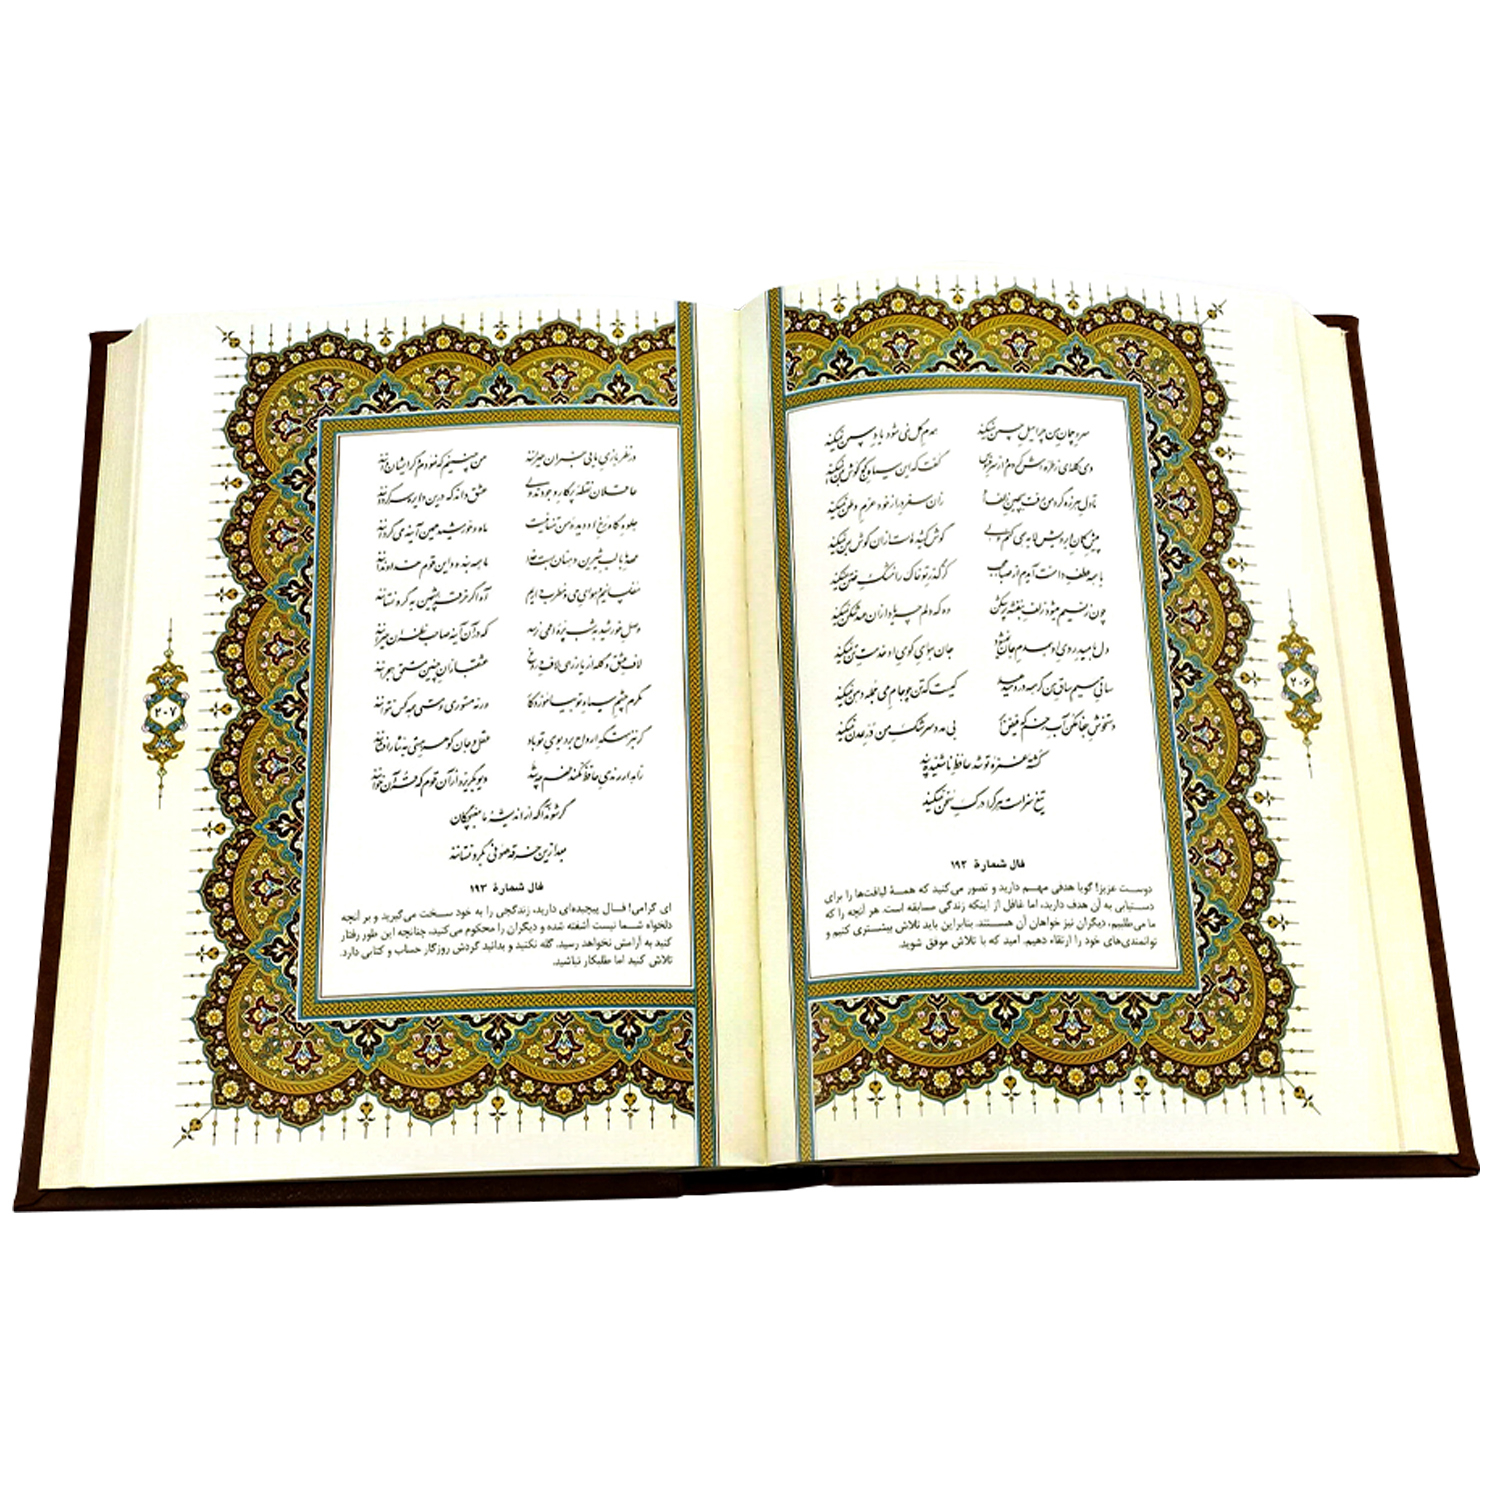 سرو چمان من چرا میل چمن نمیکند
همدم گل نمی شود یاد سمن نمیکند
دی گله‌ای ز طره اش کردم از سر فسوس
گفت که این سیاه کج گوش به من نمیکند
تا دل هرزه گرد من رفت به چین زلف او
زان سفر دراز خود عزم وطن نمیکند
پیش کمان ابرویش لابه همی کنم ولی
گوش کشیده است ازان گوش به من نمیکند
با همه عطف دامنت آیدم از صبا عجب
کز گذر تو خاک را مشک ختن نمیکند
چون ز نسیم میشود زلف بنفشه پرشکن
وه که دلم چه یاد ازان عهدشکن نمیکند
دل به امید روی او همدم جان نمیشود
جان به هوای کوی او خدمت تن نمیکند
ساقی سیم ساق من گر همه درد میدهد
کیست که تن چو جام می جمله دهن نمیکند
دستخوش جفا مکن آب رخم که فیض ابر
بی مدد سرشک من در عدن نمیکند
کشته غمزه تو شد حافظ ناشنیده پند
تیغ سزاست هر که را درک سخن نمیکند
فال شمارهٔ ۱۹۲
دوست عزیز! گویا هدفی مهم دارید و تصور می‌کنید که همهٔ لیاقت‌ها را برای
دستیابی به آن هدف دارید، اما غافل از اینکه زندگی مسابقه است. هر آنچه را که
ما می‌طلبیم، دیگران نیز خواهان آن هستند. بنابراین باید تلاش بیشتری کنیم و
توانمندی‌های خود را ارتقاء دهیم. امید که با تلاش موفق شوید.
۲۰۶
در نظربازی ما بی خبران حیرانند
من چنینم که نمودم دگر ایشان دانند
عاقلان نقطه پرگار وجودند ولی
عشق داند که درین دایره سرگردانند
جلوه گاه رخ او دیده من تنها نیست
ماه و خورشید همین آینه می گردانند
عهد ما با لب شیرین دهنان بست خدا
ما همه بنده و این قوم خداوندانند
مفلسانیم و هوای می و مطرب داریم
آه اگر خرقه پشمین به گرو نستانند
وصل خورشید به شب پره اعمی نرسد
که در آن آینه صاحب نظران حیرانند
لاف عشق و گله از یار زهی لاف دروغ
عشقبازان چنین مستحق هجرانند
مگرم چشم سیاه تو بیاموزد کار
ورنه مستوری و مستی همه کس نتوانند
گر به نزهتگه ارواح برد بوی تو باد
عقل و جان گوهر هستی به نثار افشانند
زاهد ار رندی حافظ نکند فهم چه شد
دیو بگریزد از آن قوم که قرآن خوانند
گر شوند آگه از اندیشهٔ ما مغبچگان
بعد ازین خرقه صوفی به گرو نستانند
فال شمارهٔ ۱۹۳
ای گرامی! فال پیچیده‌ای دارید، زندگی را به خود سخت می‌گیرید و بر آنچه
دلخواه شما نیست آشفته شده و دیگران را محکوم می‌کنید، چنانچه این طور رفتار
کنید به آرامش نخواهد رسید. گله نکنید و بدانید گردش روزگار حساب و کتابی دارد.
تلاش کنید اما طلبکار نباشید.
۲۰۷